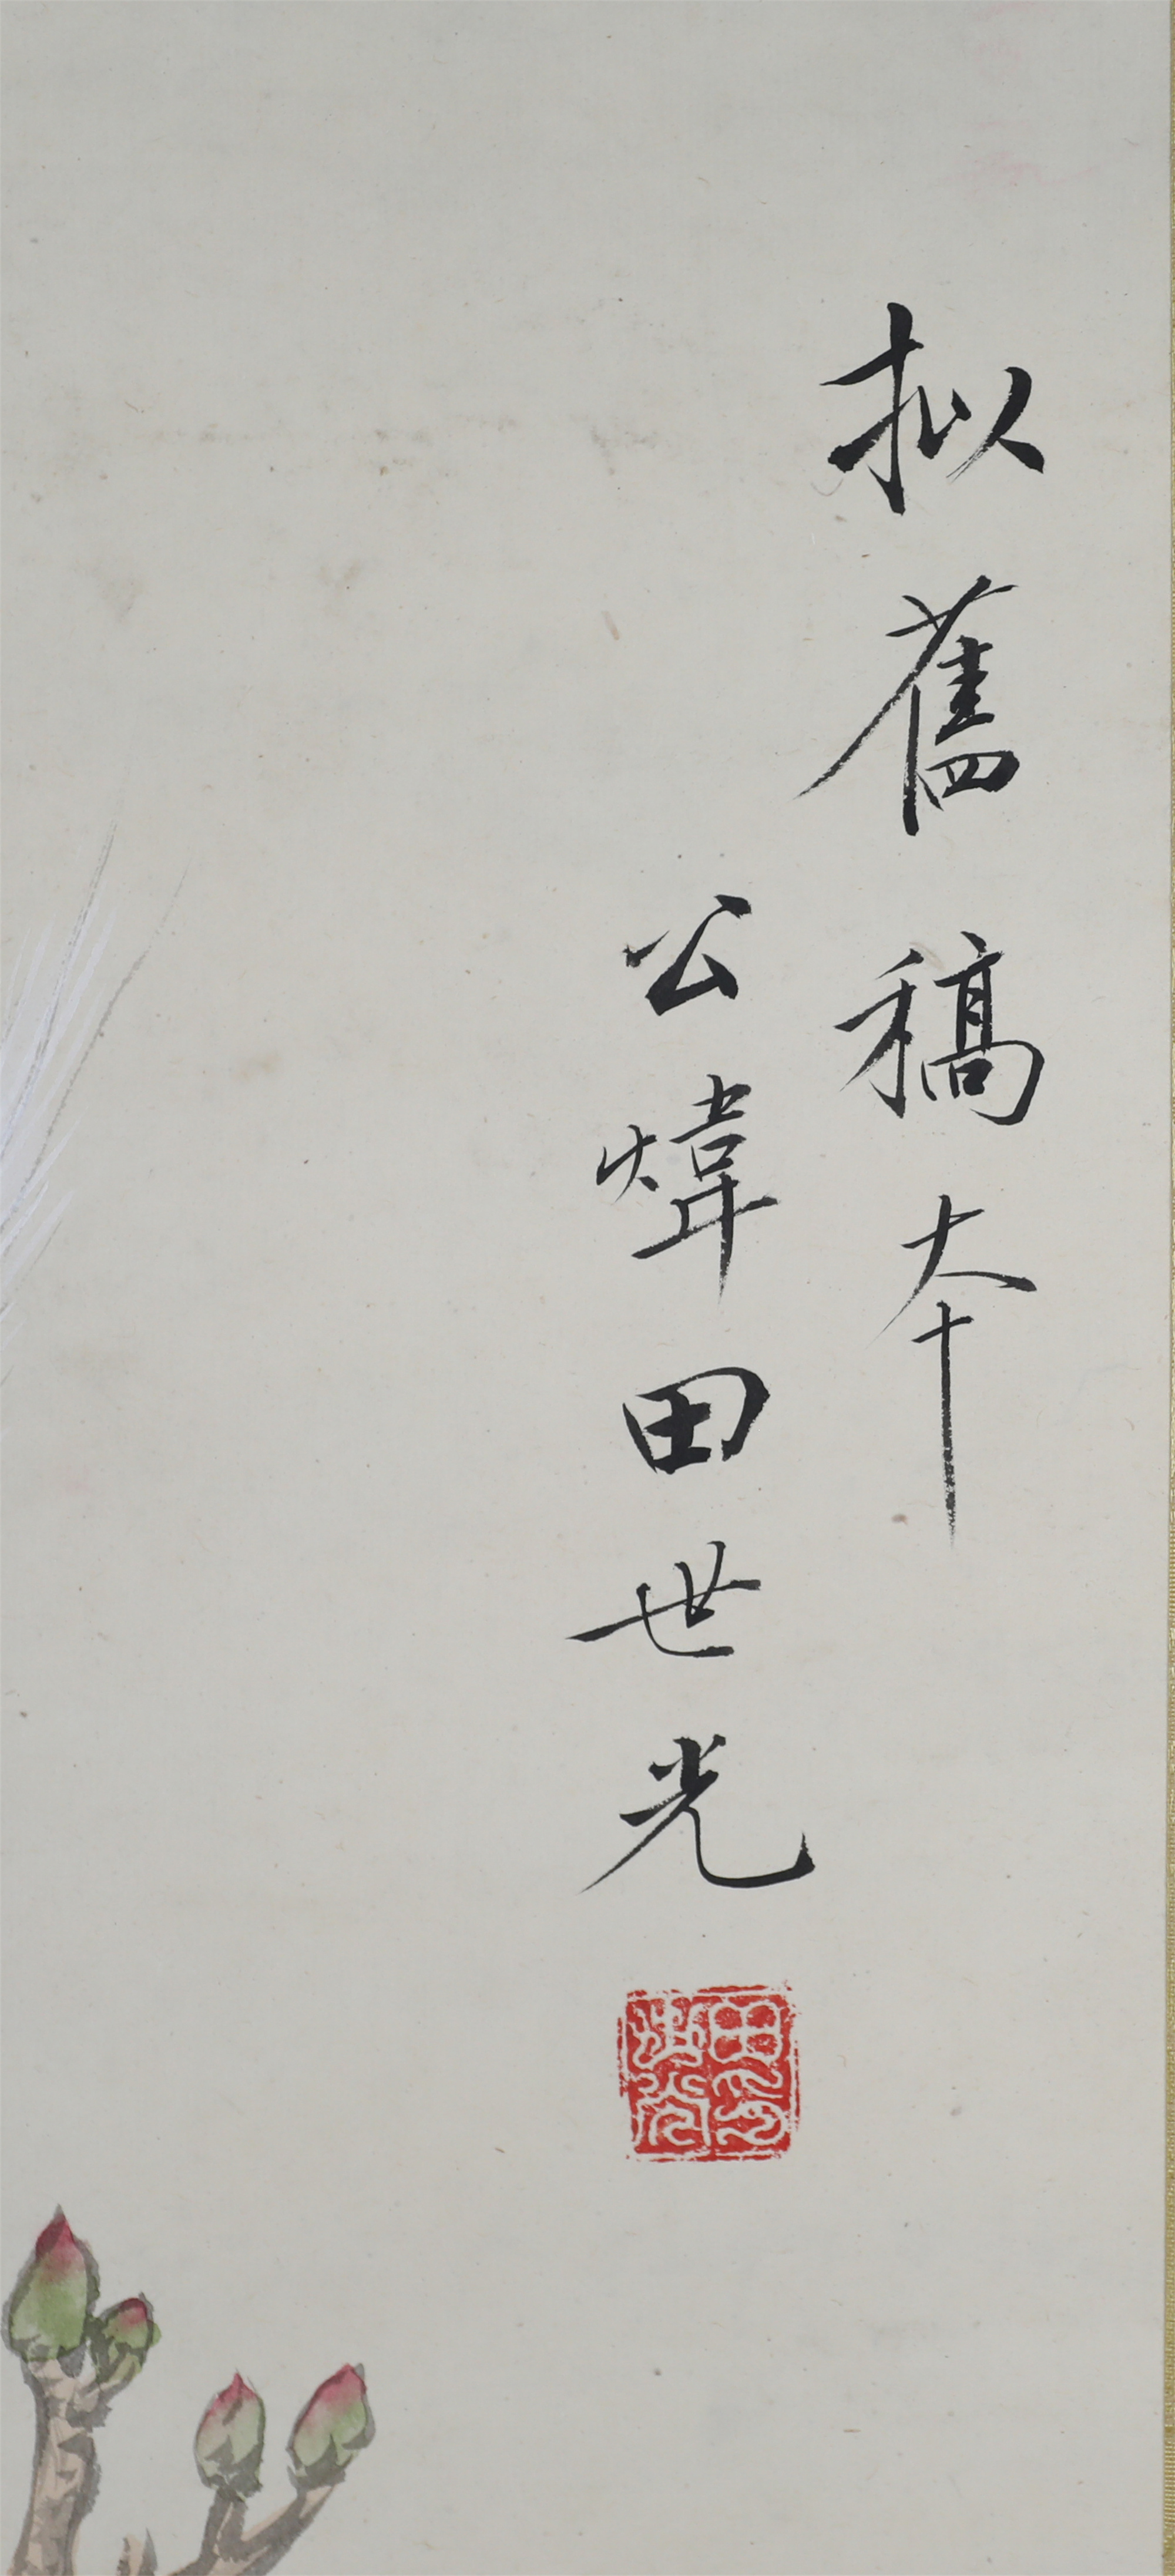 拟舊稿本
公煒田世光
田世光印